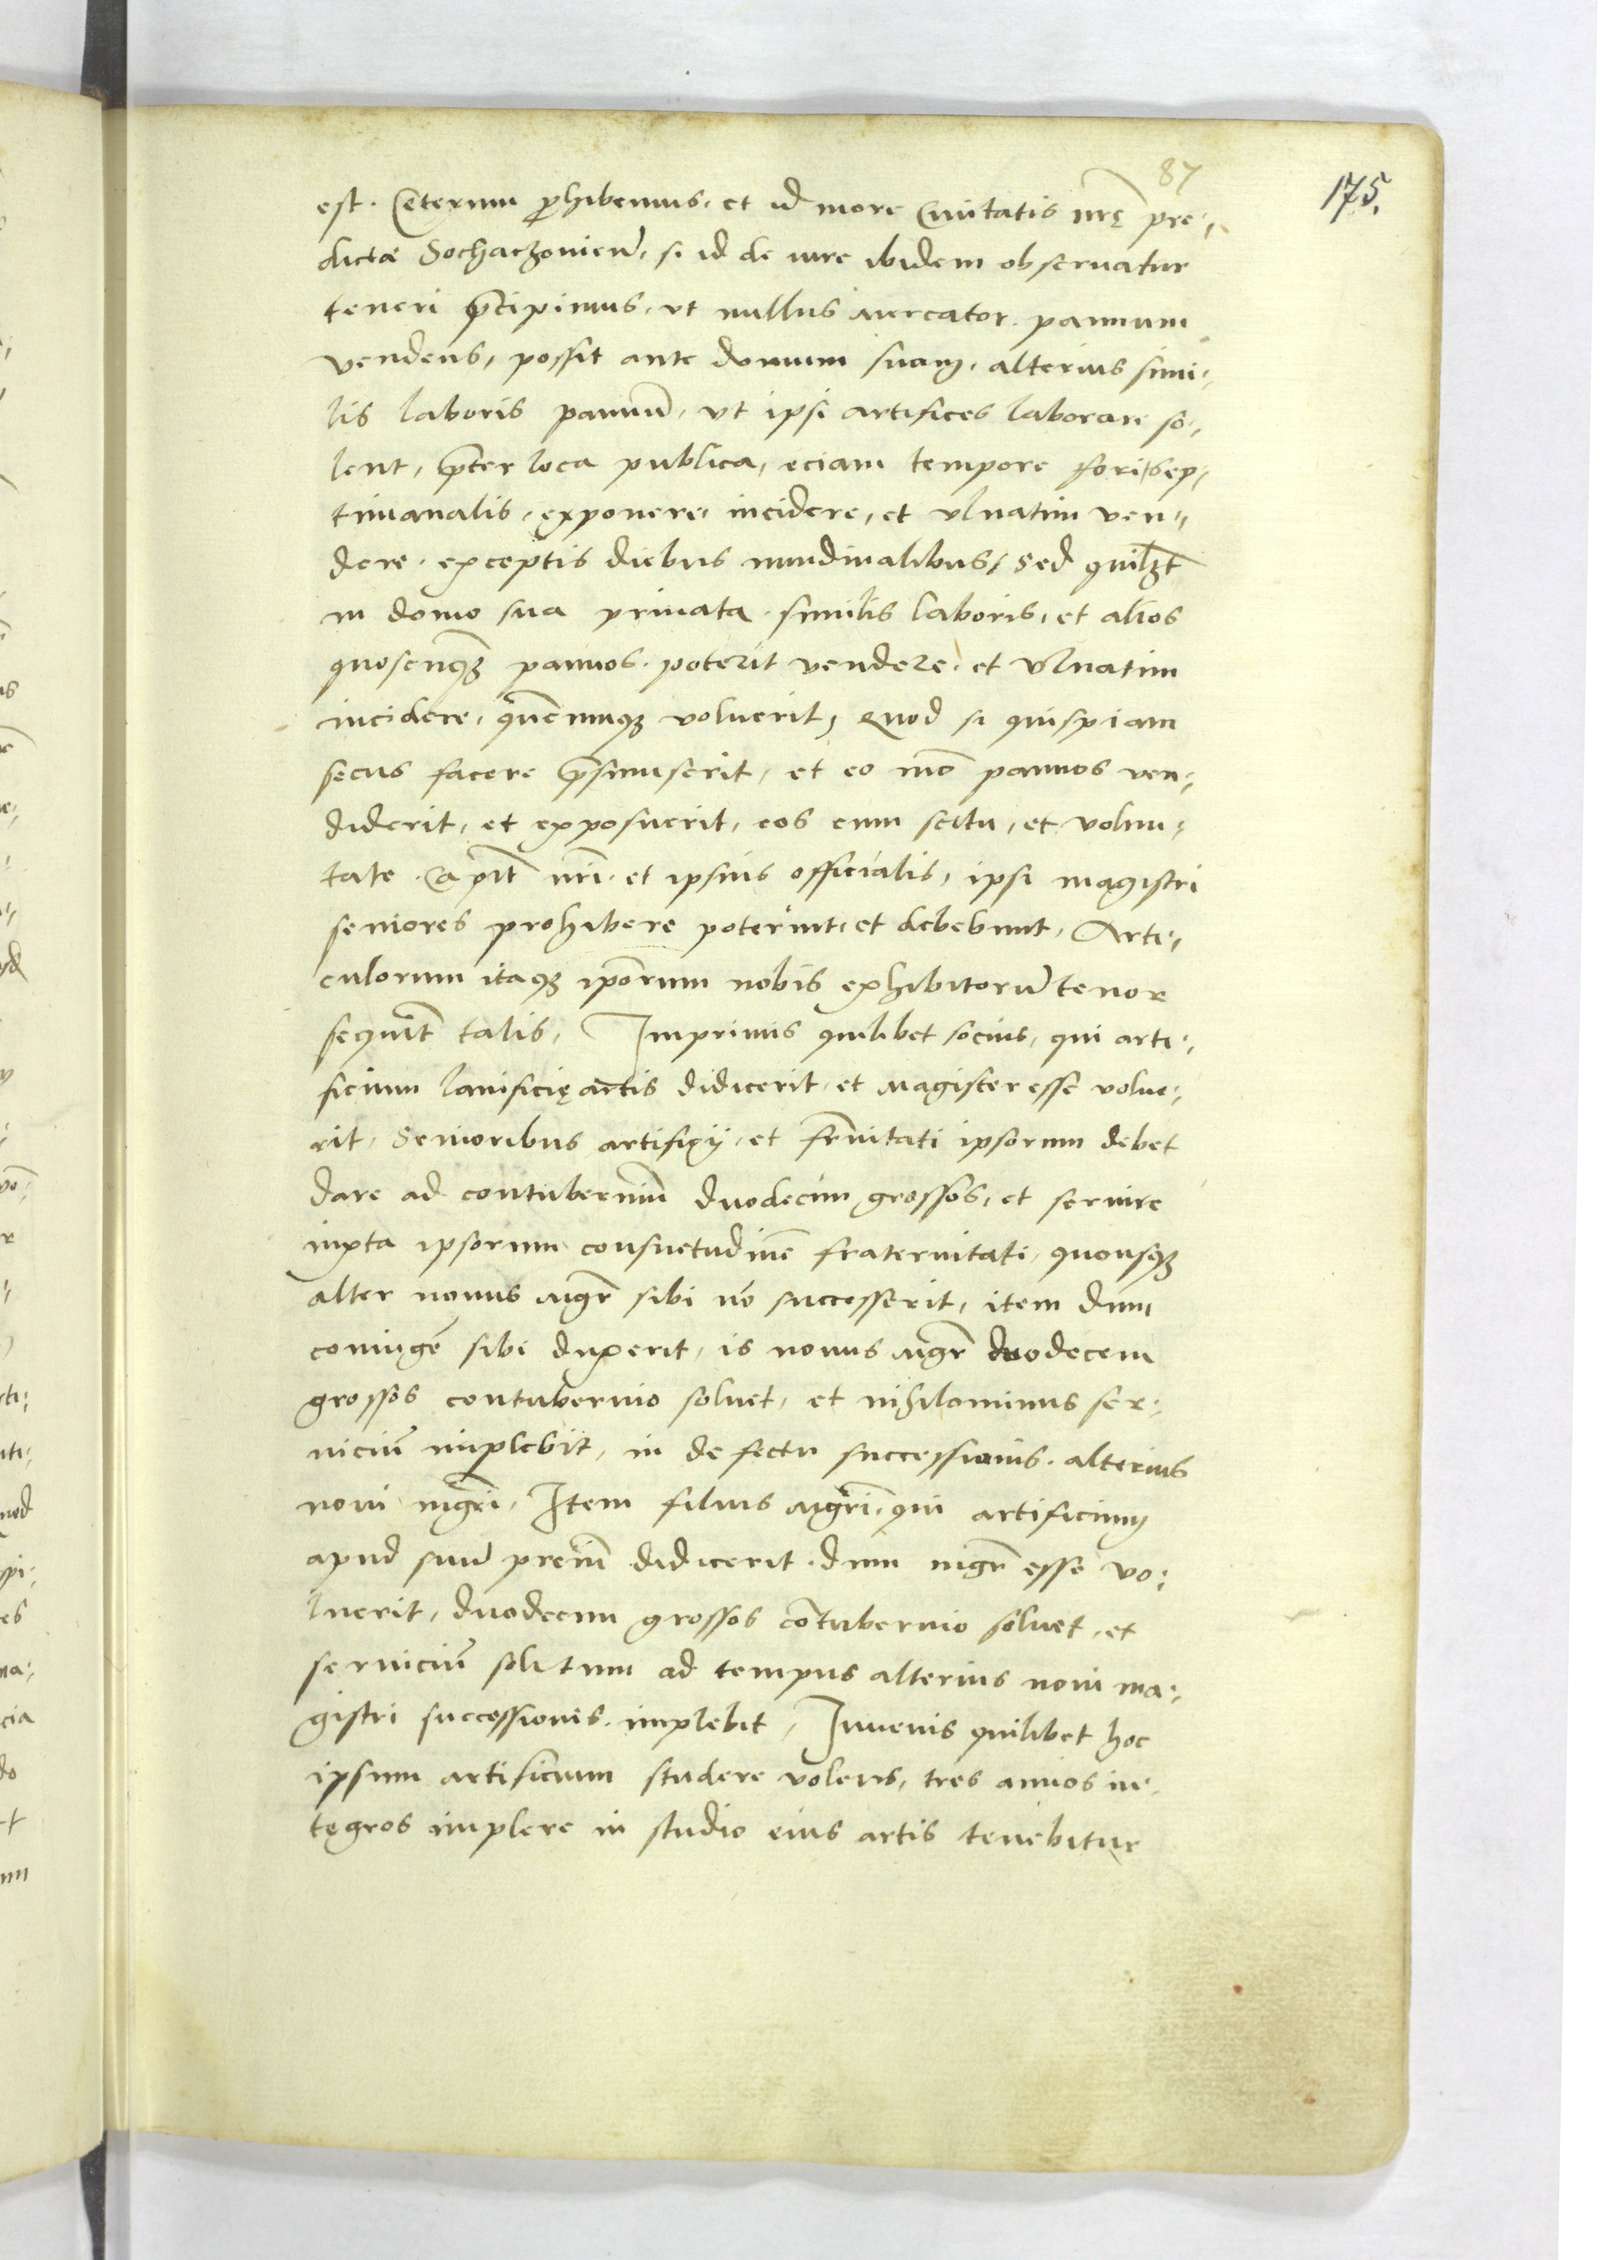 87
175.
est. Ceterum ꝓhibemus, et id more Ciuitatis nrę pre-
dictæ Sochaczouien̄, si id de iure ibidem obseruatur
teneri p̄cipimus, vt nullus mercator pannum
vendens, possit ante domum suam, alterius simi-
lis laboris pannū, vt ipsi artifices laborare so-
lent, p̄ter loca publica, eciam tempore fori sep-
timanalis, exponere, incidere, et vlnatim ven-
dere, exceptis diebus nundinalibus, Sed quilꝫt
in domo sua priuata, similis laboris, et alios
quoscunqꝫ pannos, poterit vendere, et vlnatim
incidere, quēcunqꝫ voluerit, Quod si quispiam
secus facere p̄sumserit, et eo mō pannos ven-
diderit, et exposuerit, eos cum scitu, et volun-
tate Capit̄ nrī et ipsius officialis, ipsi magistri
seniores prohibere poterint, et debebunt, Arti-
culorum itaqꝫ ip̄orum nobis exhibitorū tenor
sequit̄ talis, Imprimis quilibet socius, qui arti-
ficium lanificię artis didicerit, et magister esse volue-
rit, Senioribus artificij, et fr̄nitati ipsorum debet
dare ad contuberniū duodecim grossos, et seruire
iuxta ipsorum consuetudinē fraternitati, quousqꝫ
alter nouus mgr̄ sibi nō successerit, item dum
coniugē sibi duxerit, is nouus mgr̄ duodecem
grossos contubernio soluet, et nihilominus ser-
uiciū implebit, in defectu successionis alterius
noui mgrī, Item filius mgrī, qui artificium
apud suū prem̄ didicerit, dum mgr̄ esse vo-
luerit, duodecim grossos cōtubernio soluet, et
seruiciū solitum ad tempus alterius noui ma-
gistri successionis implebit, Iuuenis quilibet hoc
ipsum artificium studere volens, tres annos in-
tegros implere in studio eius artis tenebitur